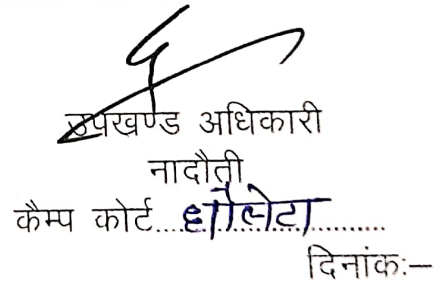 उपखण्ड अधिकारी
नादौती
कैम्प कोर्ट....धौलेटा....................
दिनांक:–